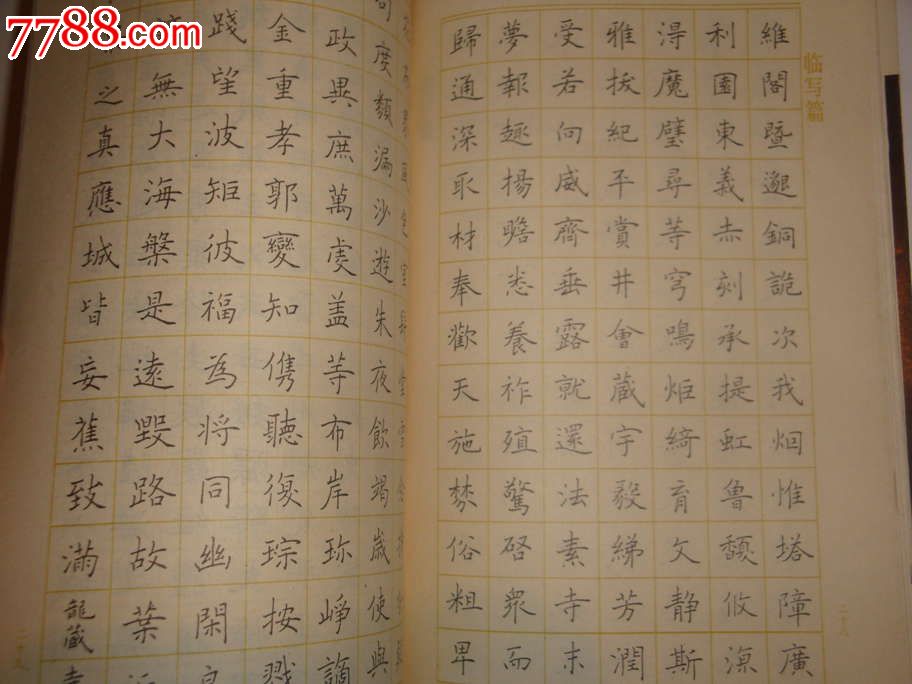 临写篇
維閣暨遐銅詭次我烟惟塔障廣
利園東義赤刻承提虹魯馥攸凉
淂魔璧尋等穹鳴炬綺育文静斯
雅拔紀平賞井會蔵宇毅綈芳潤
受若向威齊垂露就還法素寺末
夢報趣揚瞻悉養祚殖驚啓衆而
歸通深取材奉歡天施棼俗粗卑
二八
度類漏沙遊朱夜飲竭歲使與
政異庶萬虔盖等布岸珎崢謫
金重孝郭變知儁聽復琮按戮
踐望波矩彼福為将同幽閑良
無大海槃是遠毀路故葉
之真應城皆妄蕉致滿龍蔵
7788.com